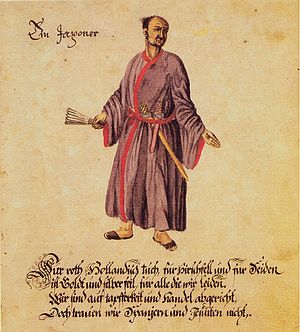 Ein Japoner.
Für roth Hollandisch tuch, für hirschfell und für Seiden
ist Goldt und silber feil, für alle die wir leiden.
Wir sind auf tapfferkeit und handel abgericht,
Doch trauen wir Spaniern und Jesuiten nicht.